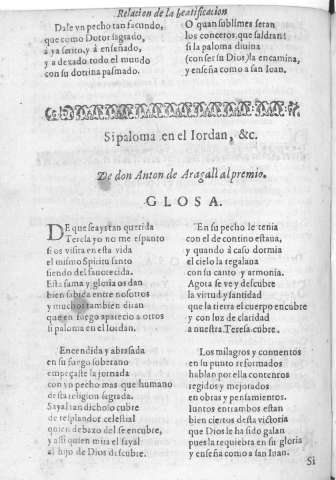 Relacion de la beatificacion
Dale vn pecho tan facundo,
que como Dotor sagrado,
á ya scrito, y á enseñado,
y a dexado todo el mundo
con su dotrina pasmado.
O quan sublimes seran
los concetos, que saldran!
si la paloma diuina
(con ser su Dios) la encamina,
y enseña como a san Iuan.
Si paloma en el Iordan, &c.
De don Anton de Aragall al premio.
GLOSA.
DE que seays tan querida
Teresa yo no me espanto
si os visita en esta vida
el mismo Spiritu santo
siendo del fauorecida.
Esta fama y gloria os dan
bien sabida entre nosotros
y muchos tambien diran
que en fuego aparecio a otros
si paloma en el Iordan.
Encendida y abrasada
en su fuego soberano
empeçaste la jornada
con vn pecho mas que humano
desta religion sagrada.
Sayal tan dichoso cubre
de resplandor celestial
quien debaxo del se encubre,
y assi quien mira el sayal
al hijo de Dios descubre.
En su pecho le tenia
con el de contino estaua,
y quando á caso dormia
el cielo la regalaua
con su canto y armonia.
Agora se ve y descubre
la virtud y santidad
que la tierra el cuerpo encubre
y con luz de claridad
a nuestra Teresa cubre.
Los milagros y conuentos
en su punto reformados
hablan por ella contentos
regidos y mejorados
en obras y pensamientos.
Iuntos entrambos estan
bien ciertos desta victoria
que Dios le ha sido galan
pues la requiebra en su gloria
y enseña como a san Iuan.
Si